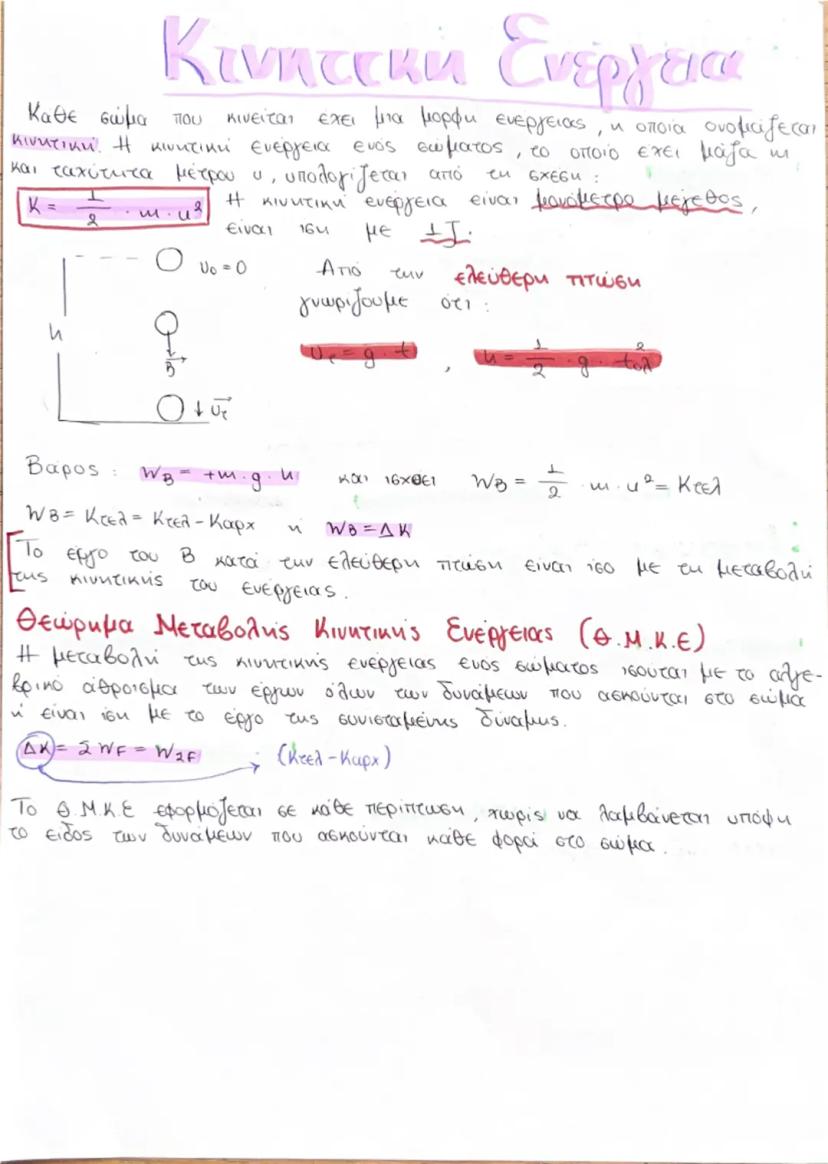 Κινητική Ενέργεια
Κάθε σώμα που κινείται έχει μια μορφή ενέργειας, η οποία ονομάζεται
κινητική. Η κινητική ενέργεια ενός σώματος, το οποίο έχει μάζα m
και ταχύτητα μέτρου υ, υπολογίζεται από τη σχέση:
K = 1/2 · m · υ² Η κινητική ενέργεια είναι μονόμετρο μέγεθος,
είναι ίση με 1J.
υ₀ = 0 Από την ελεύθερη πτώση
γνωρίζουμε ότι:
h
B
υτ = g · t , h = 1/2 · g · t²ολ
↓ υτ
Βάρος: WB = +m · g · h και ισχύει WB = 1/2 · m · υ² = Κτελ
WB = Κτελ = Κτελ - Καρχ ή WB = ΔΚ
Το έργο του Β κατά την ελεύθερη πτώση είναι ίσο με τη μεταβολή
της κινητικής του ενέργειας.
Θεώρημα Μεταβολής Κινητικής Ενέργειας (Θ.Μ.Κ.Ε)
Η μεταβολή της κινητικής ενέργειας ενός σώματος ισούται με το αλγε-
βρικό άθροισμα των έργων όλων των δυνάμεων που ασκούνται στο σώμα
ή είναι ίση με το έργο της συνισταμένης δύναμης.
ΔΚ = ΣWF = WΣF (Κτελ - Καρχ)
Το Θ.Μ.Κ.Ε εφορμόζεται σε κάθε περίπτωση, χωρίς να λαμβάνεται υπόψη
το είδος των δυνάμεων που ασκούνται κάθε φορά στο σώμα.